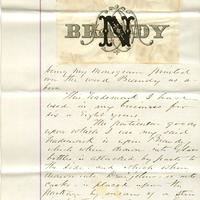 BRANDY
N
being my Monogram printed
on the word Brandy as a
The Trademark I have
used in my business for
six or Eight years.
The particular goods
upon which I use my said
Trademark is upon Brandy
which when drawn into glass
bottles is attached by paste to
the side and when
into
casks is placed upon the
package by means of a